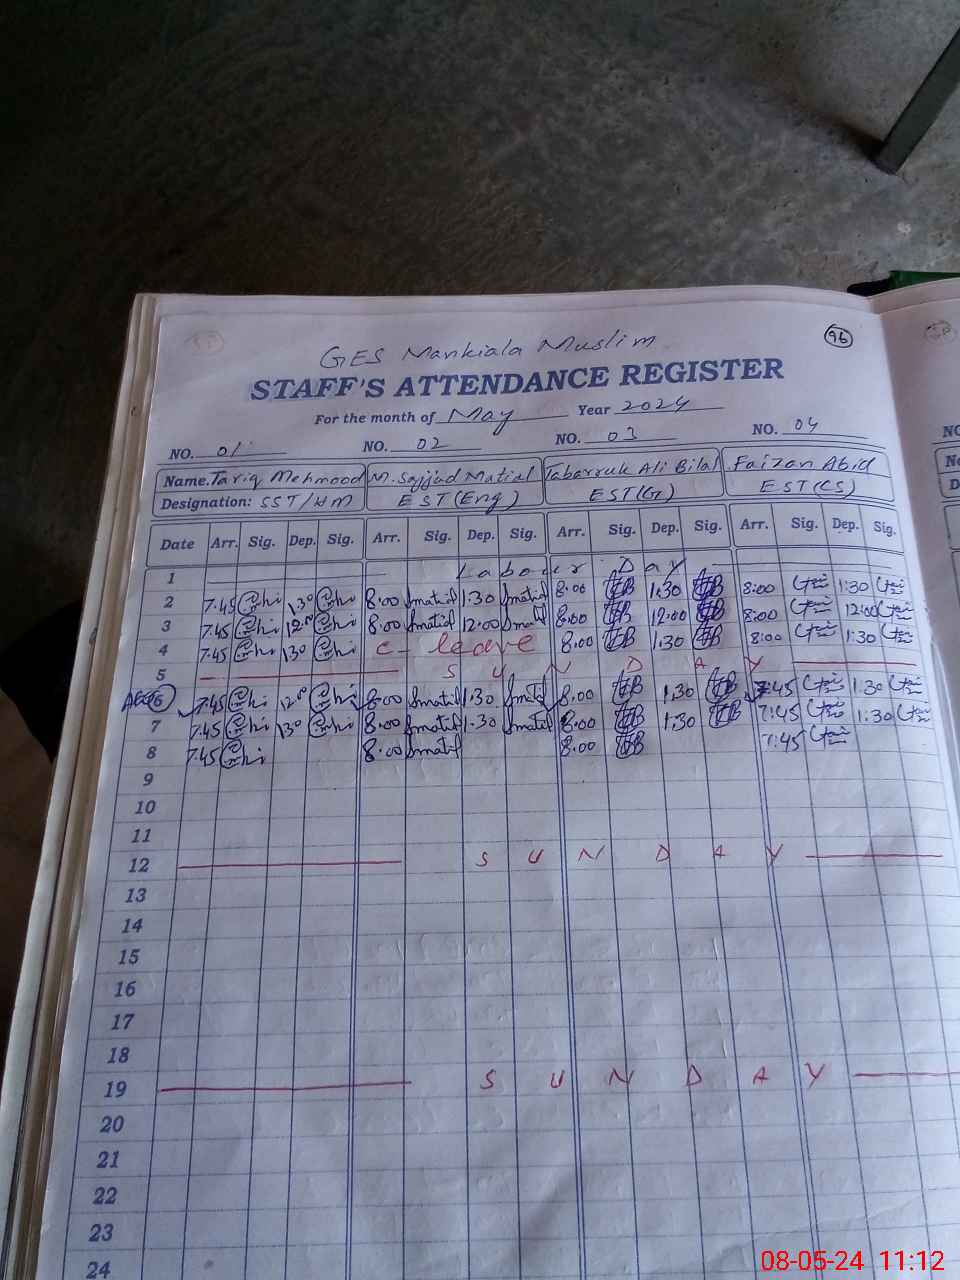 96
GES Mankiala Muslim
STAFF'S ATTENDANCE REGISTER
For the month of May Year 2024
NO. 01 NO. 02 NO. 03 NO. 04
Name. Tariq Mehmood M. Sajjad Matial Tabarruk Ali Bilal Faizan Abid
Designation: SST/HM EST (Eng) EST(G) EST(CS)
Date Arr. Sig. Dep. Sig. Arr. Sig. Dep. Sig. Arr. Sig. Dep. Sig. Arr. Sig. Dep. Sig.
1 Labour Day
2 7.45 1.30 8.00 1.30 8.00 1.30 8:00 1:30
3 7.45 12.00 8.00 12.00 8.00 12.00 8:00 12:00
4 7.45 1.30 C- leave 8.00 1.30 8:00 1:30
5 SUNDAY
6 7.45 8.00 1.30 8.00 1.30 7:45 1:30
7 7.45 1.30 8.00 1.30 8.00 1.30 7:45 1:30
8 7.45 8.00 8.00 7:45
9
10
11
12 SUNDAY
13
14
15
16
17
18
19 SUNDAY
20
21
22
23
24
NO
08-05-24 11:12